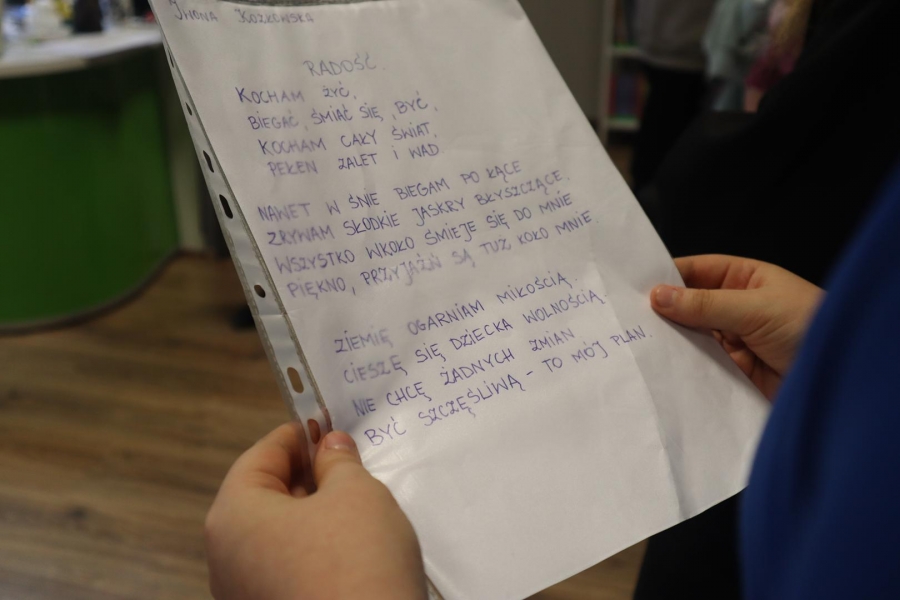 IWONA
RADOŚĆ.
KOCHAM ŻYĆ,
BIEGAĆ, ŚMIAĆ SIĘ, BYĆ,
KOCHAM CAŁY ŚWIAT,
PEŁEN ZALET I WAD.
NAWET W ŚNIE BIEGAM PO ŁĄCE
ZRYWAM SŁODKIE JASKRY BŁYSZCZĄCE.
WSZYSTKO WKOŁO ŚMIEJE SIĘ DO MNIE
PIĘKNO, PRZYJAŹŃ SĄ TUŻ KOŁO MNIE.
ZIEMIĘ OGARNIAM MIŁOŚCIĄ,
CIESZĘ SIĘ DZIECKA WOLNOŚCIĄ.
NIE CHCĘ ŻADNYCH ZMIAN
BYĆ SZCZĘŚLIWĄ - TO MÓJ PLAN.